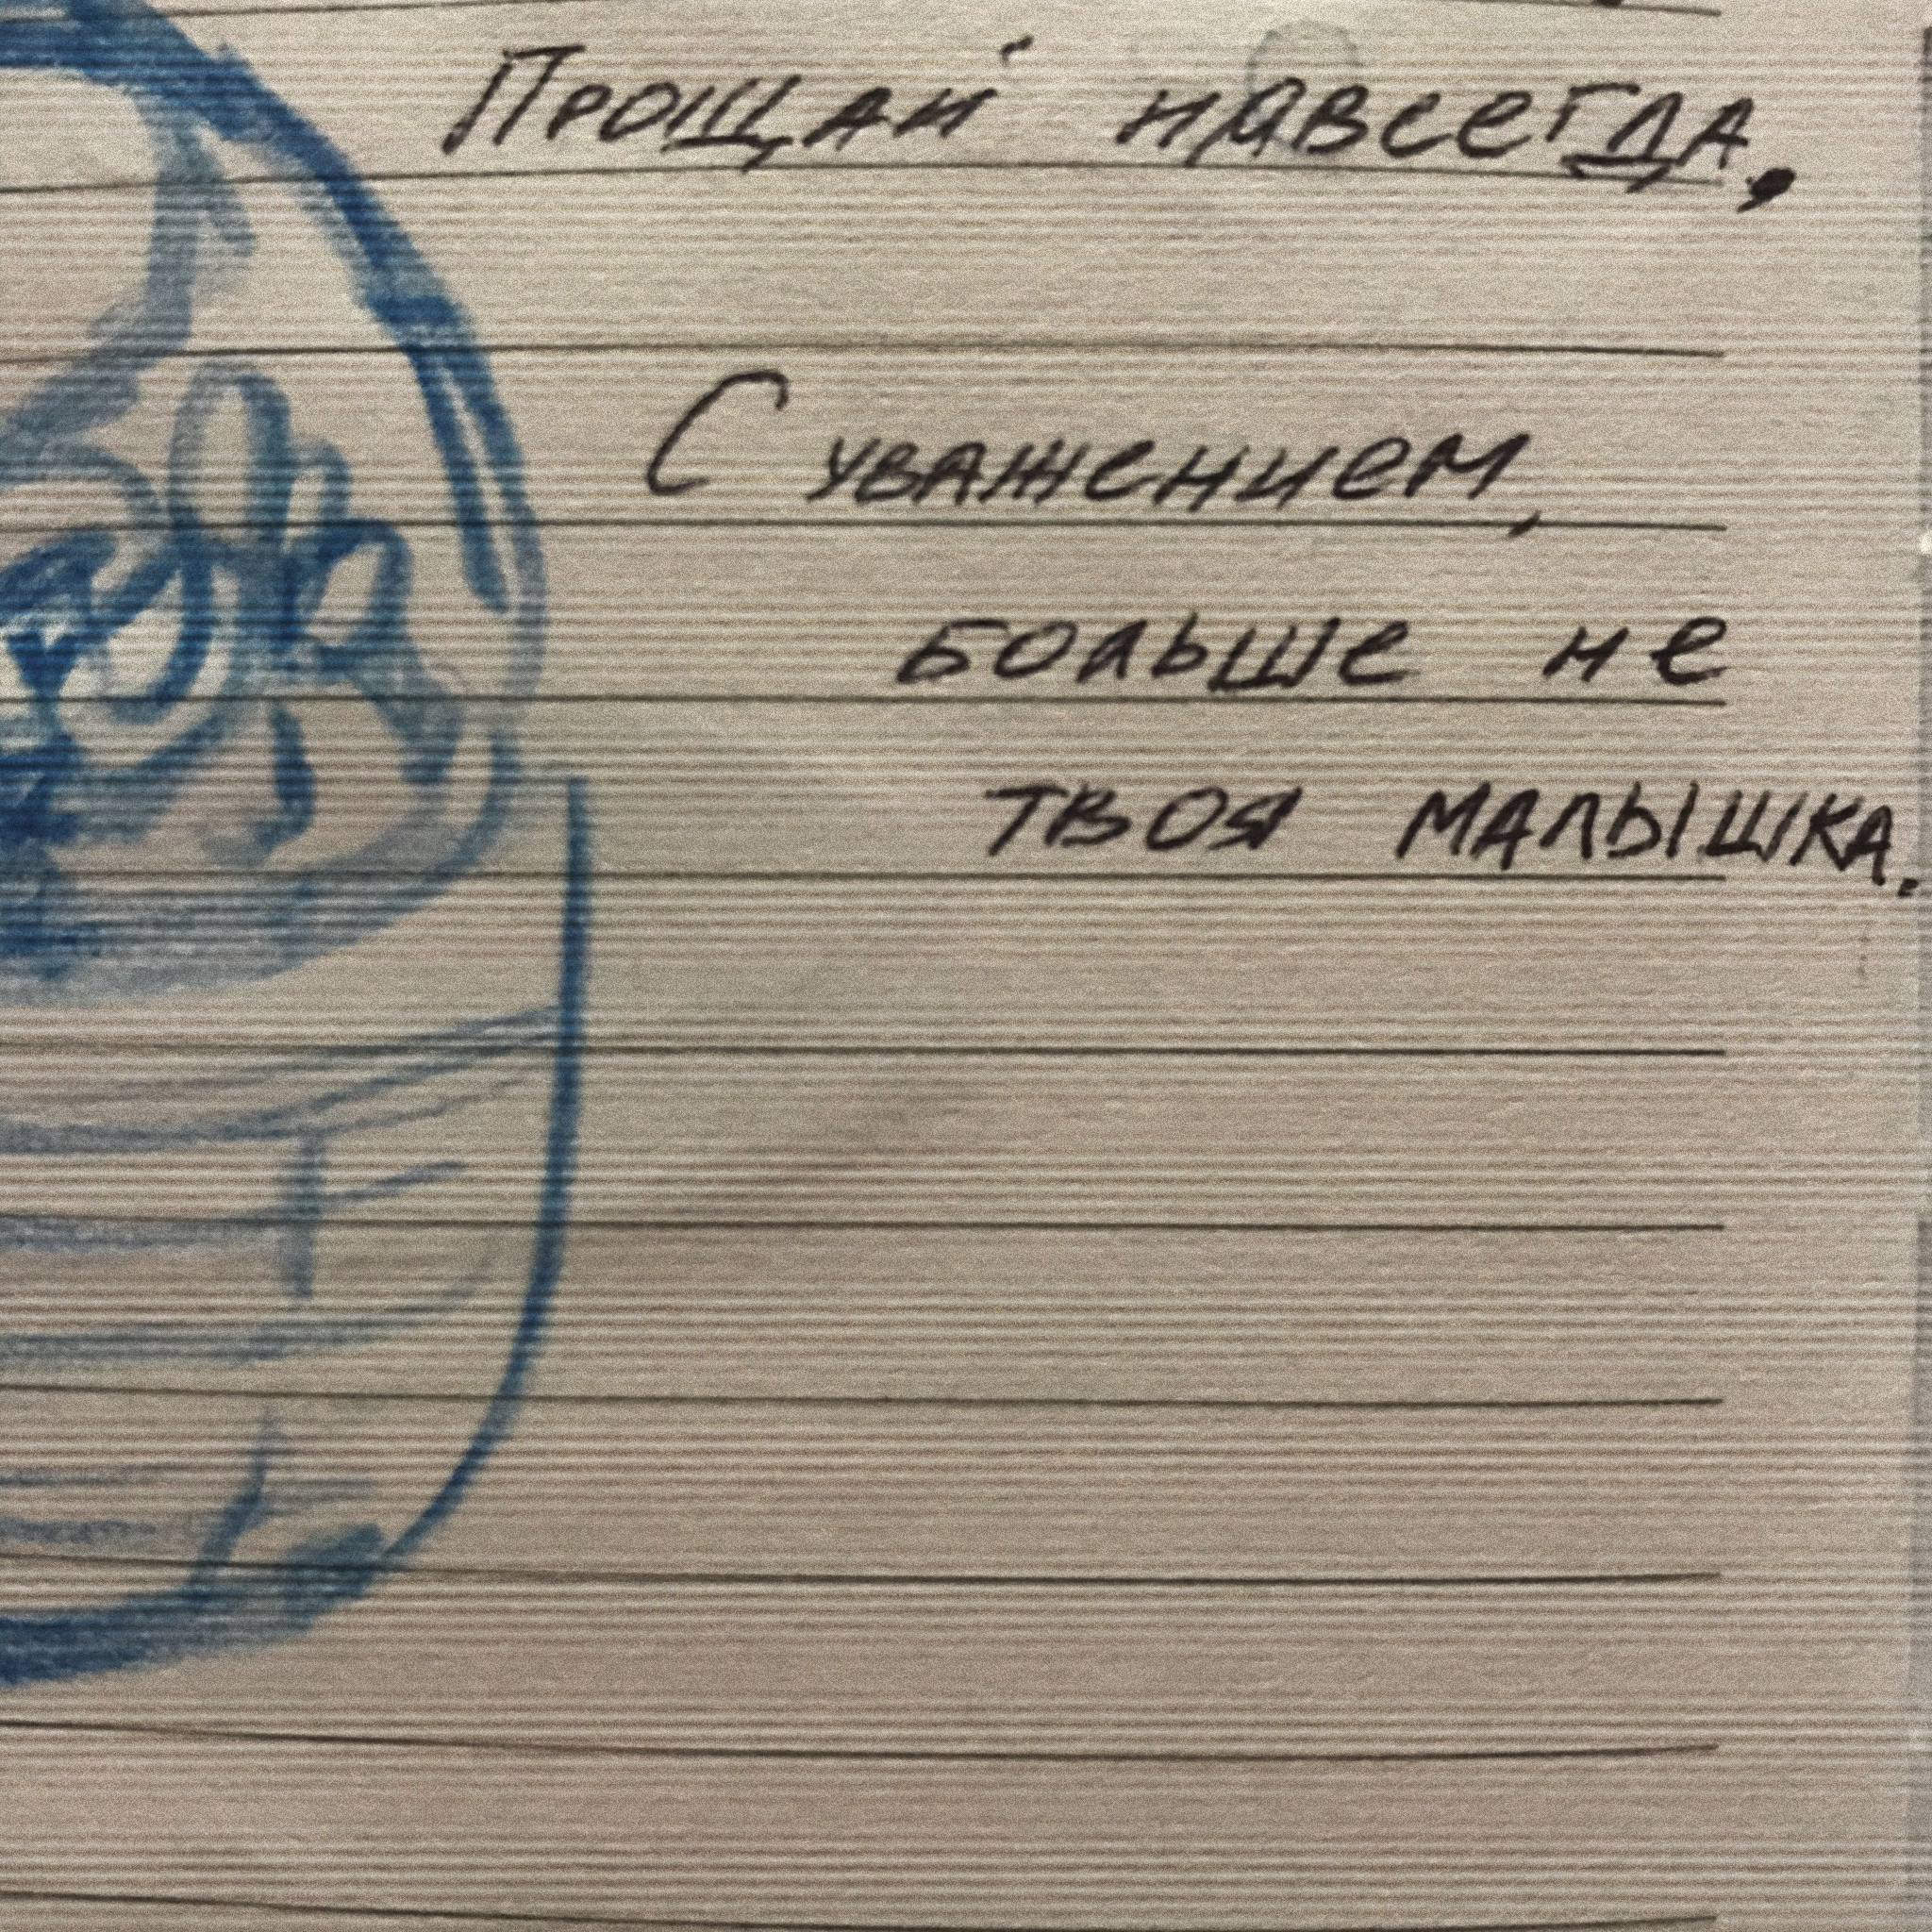 Прощай навсегда,
С уважением,
больше не
твоя малышка.